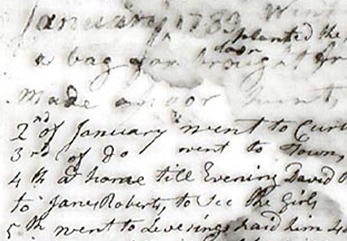 January 1783 Went
planted the
a bag for brought fr
made a poor hunt,
2nd of January went to Curt
3rd of do went to Town,
4th at home till Evening David
to Jane Roberts, to See the Girls
5th went to Leverings paid him 40